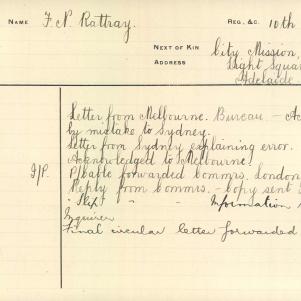 NAME F. N. Rattray. REG. &C. 10th
NEXT OF KIN City Mission,
ADDRESS Light Squar
Adelaide
Letter from Melbourne. Bureau. - Ac
by mistake to Sydney.
Letter from Sydney explaining error.
Acknowledged to Melbourne.
I/P. P/Cable forwarded Commrs. London
Reply from Commrs. - Copy sent
" " Information
Inquirer
Final circular letter forwarded